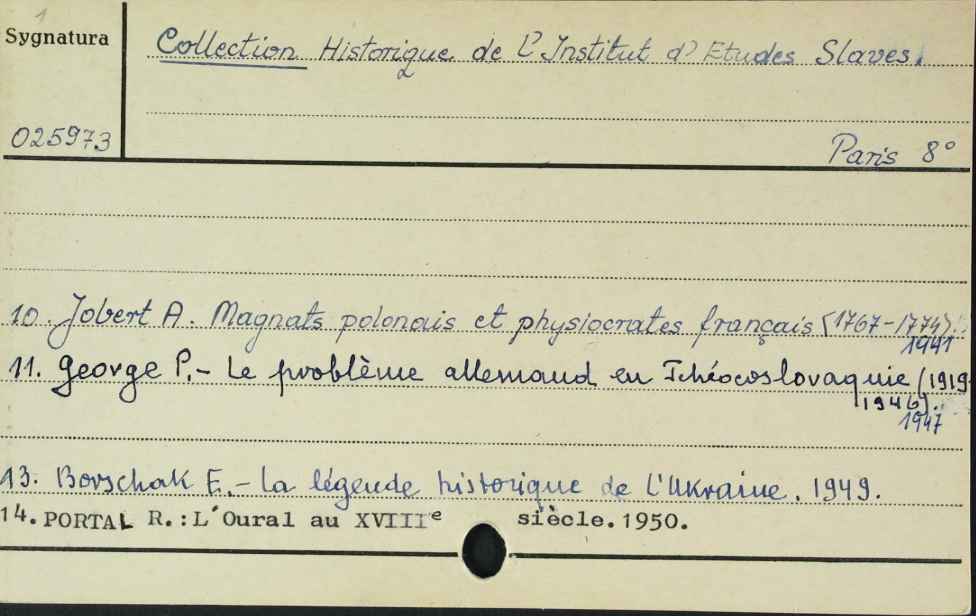 1
Sygnatura
Collection Historique de L'Institut d'Etudes Slaves.
025973
Paris 8°
10. Jobert A. Magnats polonais et physiocrates français (1767-1774).
1941
11. George P.- Le problème allemand en Tchécoslovaquie (1919-
1946).
1947
13. Borschak E.- La légende historique de l'Ukraine. 1949.
14. PORTAL R.: L'Oural au XVIIIe siècle. 1950.